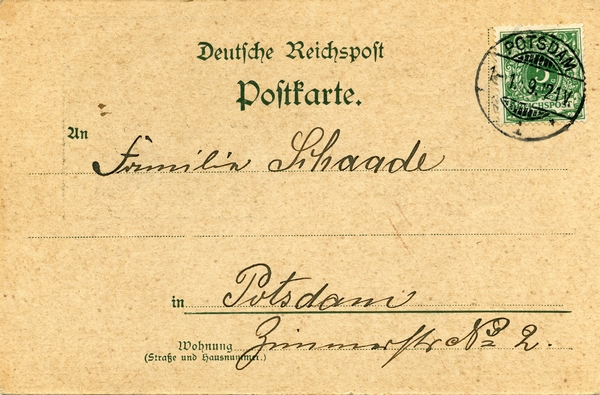 Deutsche Reichspost
Postkarte.
POTSDAM
5
REICHSPOST
An
Familie Schaade
in Potsdam
Wohnung Zimmerstr No 2.
(Straße und Hausnummer.)